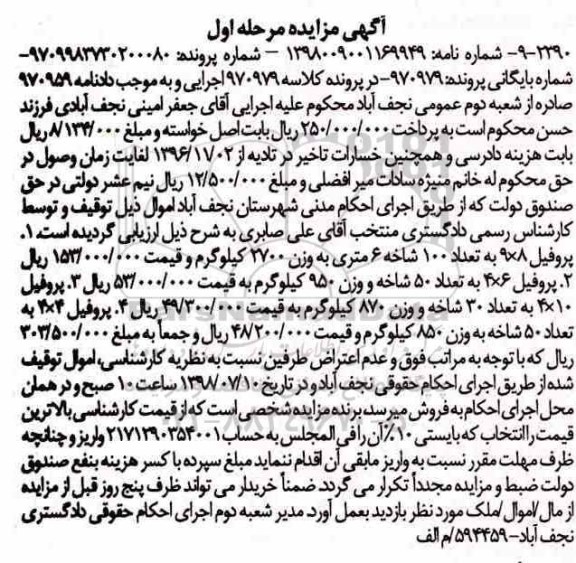 آگهی مزایده مرحله اول
۹-۲۳۹۰- شماره نامه: ۱۳۹۸۰۰۹۰۰۱۱۶۹۹۴۹ - شماره پرونده: ۹۷۰۹۹۸۳۷۳۰۲۰۰۰۸۰-
شماره بایگانی پرونده: ۹۷۰۹۷۹- در پرونده کلاسه ۹۷۰۹۷۹ اجرایی و به موجب دادنامه ۹۷۰۹۵۹
صادره از شعبه دوم عمومی نجف آباد محکوم علیه اجرایی آقای جعفر امینی نجف آبادی فرزند
حسن محکوم است به پرداخت ۲۵۰/۰۰۰/۰۰۰ ریال بابت اصل خواسته و مبلغ ۸/۱۳۴/۰۰۰ ریال
بابت هزینه دادرسی و همچنین خسارات تاخیر در تادیه از ۱۳۹۶/۱۱/۰۲ لغایت زمان وصول در
حق محکوم له خانم منیژه سادات میر افضلی و مبلغ ۱۲/۵۰۰/۰۰۰ ریال نیم عشر دولتی در حق
صندوق دولت که از طریق اجرای احکام مدنی شهرستان نجف آباد اموال ذیل توقیف و توسط
کارشناس رسمی دادگستری منتخب آقای علی صابری به شرح ذیل ارزیابی گردیده است. ۱.
پروفیل ۸×۹ به تعداد ۱۰۰ شاخه ۶ متری به وزن ۲۷۰۰ کیلوگرم و قیمت ۱۵۳/۰۰۰/۰۰۰ ریال
۲. پروفیل ۶×۴ به تعداد ۵۰ شاخه و وزن ۹۵۰ کیلوگرم به قیمت ۵۳/۰۰۰/۰۰۰ ریال ۳. پروفیل
۱۰×۴ به تعداد ۳۰ شاخه و وزن ۸۷۰ کیلوگرم به قیمت ۴۹/۳۰۰/۰۰۰ ریال ۴. پروفیل ۴×۴ به
تعداد ۵۰ شاخه به وزن ۸۵۰ کیلوگرم و قیمت ۴۸/۲۰۰/۰۰۰ ریال و جمعاً به مبلغ ۳۰۳/۵۰۰/۰۰۰
ریال که با توجه به مراتب فوق و عدم اعتراض طرفین نسبت به نظریه کارشناسی، اموال توقیف
شده از طریق اجرای احکام حقوقی نجف آباد و در تاریخ ۱۳۹۸/۰۷/۱۰ ساعت ۱۰ صبح و در همان
محل اجرای احکام به فروش میرسد. برنده مزایده شخصی است که از قیمت کارشناسی بالاترین
قیمت را انتخاب که بایستی ۱۰٪ آن را فی المجلس به حساب ۲۱۷۱۲۹۰۲۵۳۰۰۱ واریز و چنانچه
ظرف مهلت مقرر نسبت به واریز مابقی آن اقدام ننماید مبلغ سپرده با کسر هزینه بنفع صندوق
دولت ضبط و مزایده مجدداً تکرار می گردد. ضمناً خریدار می تواند ظرف پنج روز قبل از مزایده
از مال/اموال/ملک مورد نظر بازدید بعمل آورد. مدیر شعبه دوم اجرای احکام حقوقی دادگستری
نجف آباد- ۵۹۴۴۵۹/م الف